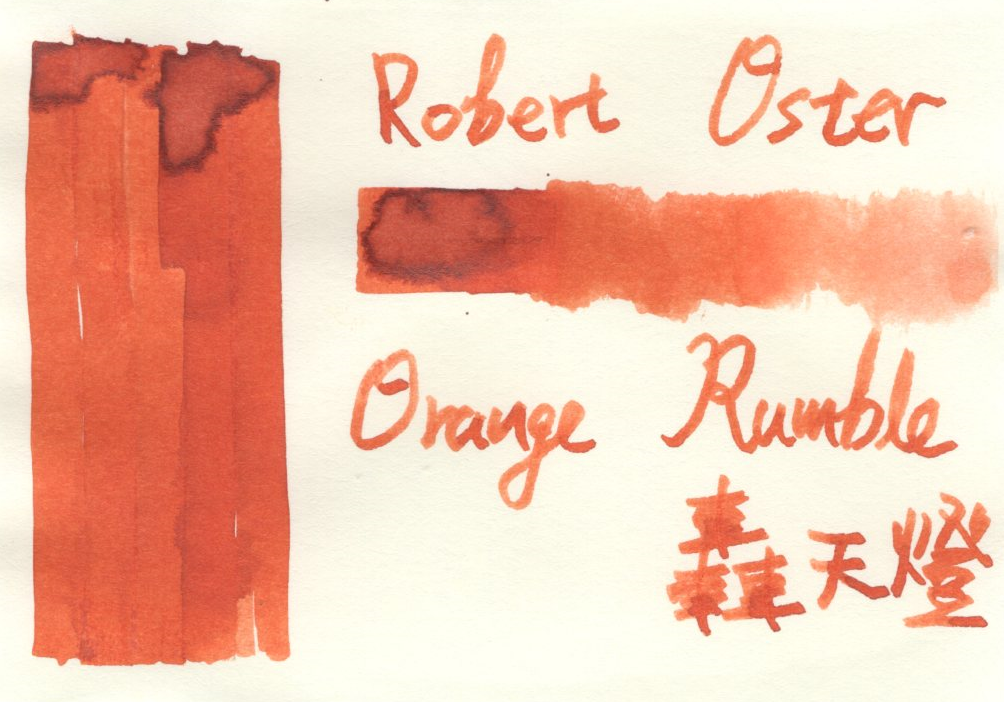 Robert Oster
Orange Rumble
轟天燈